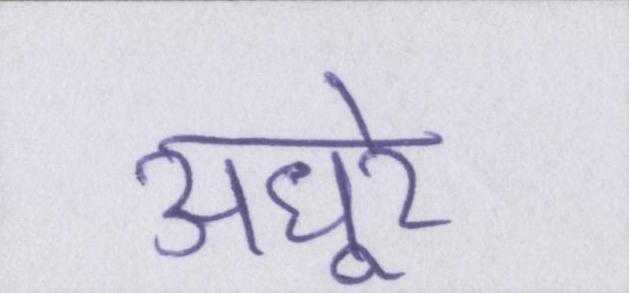 अधूरे